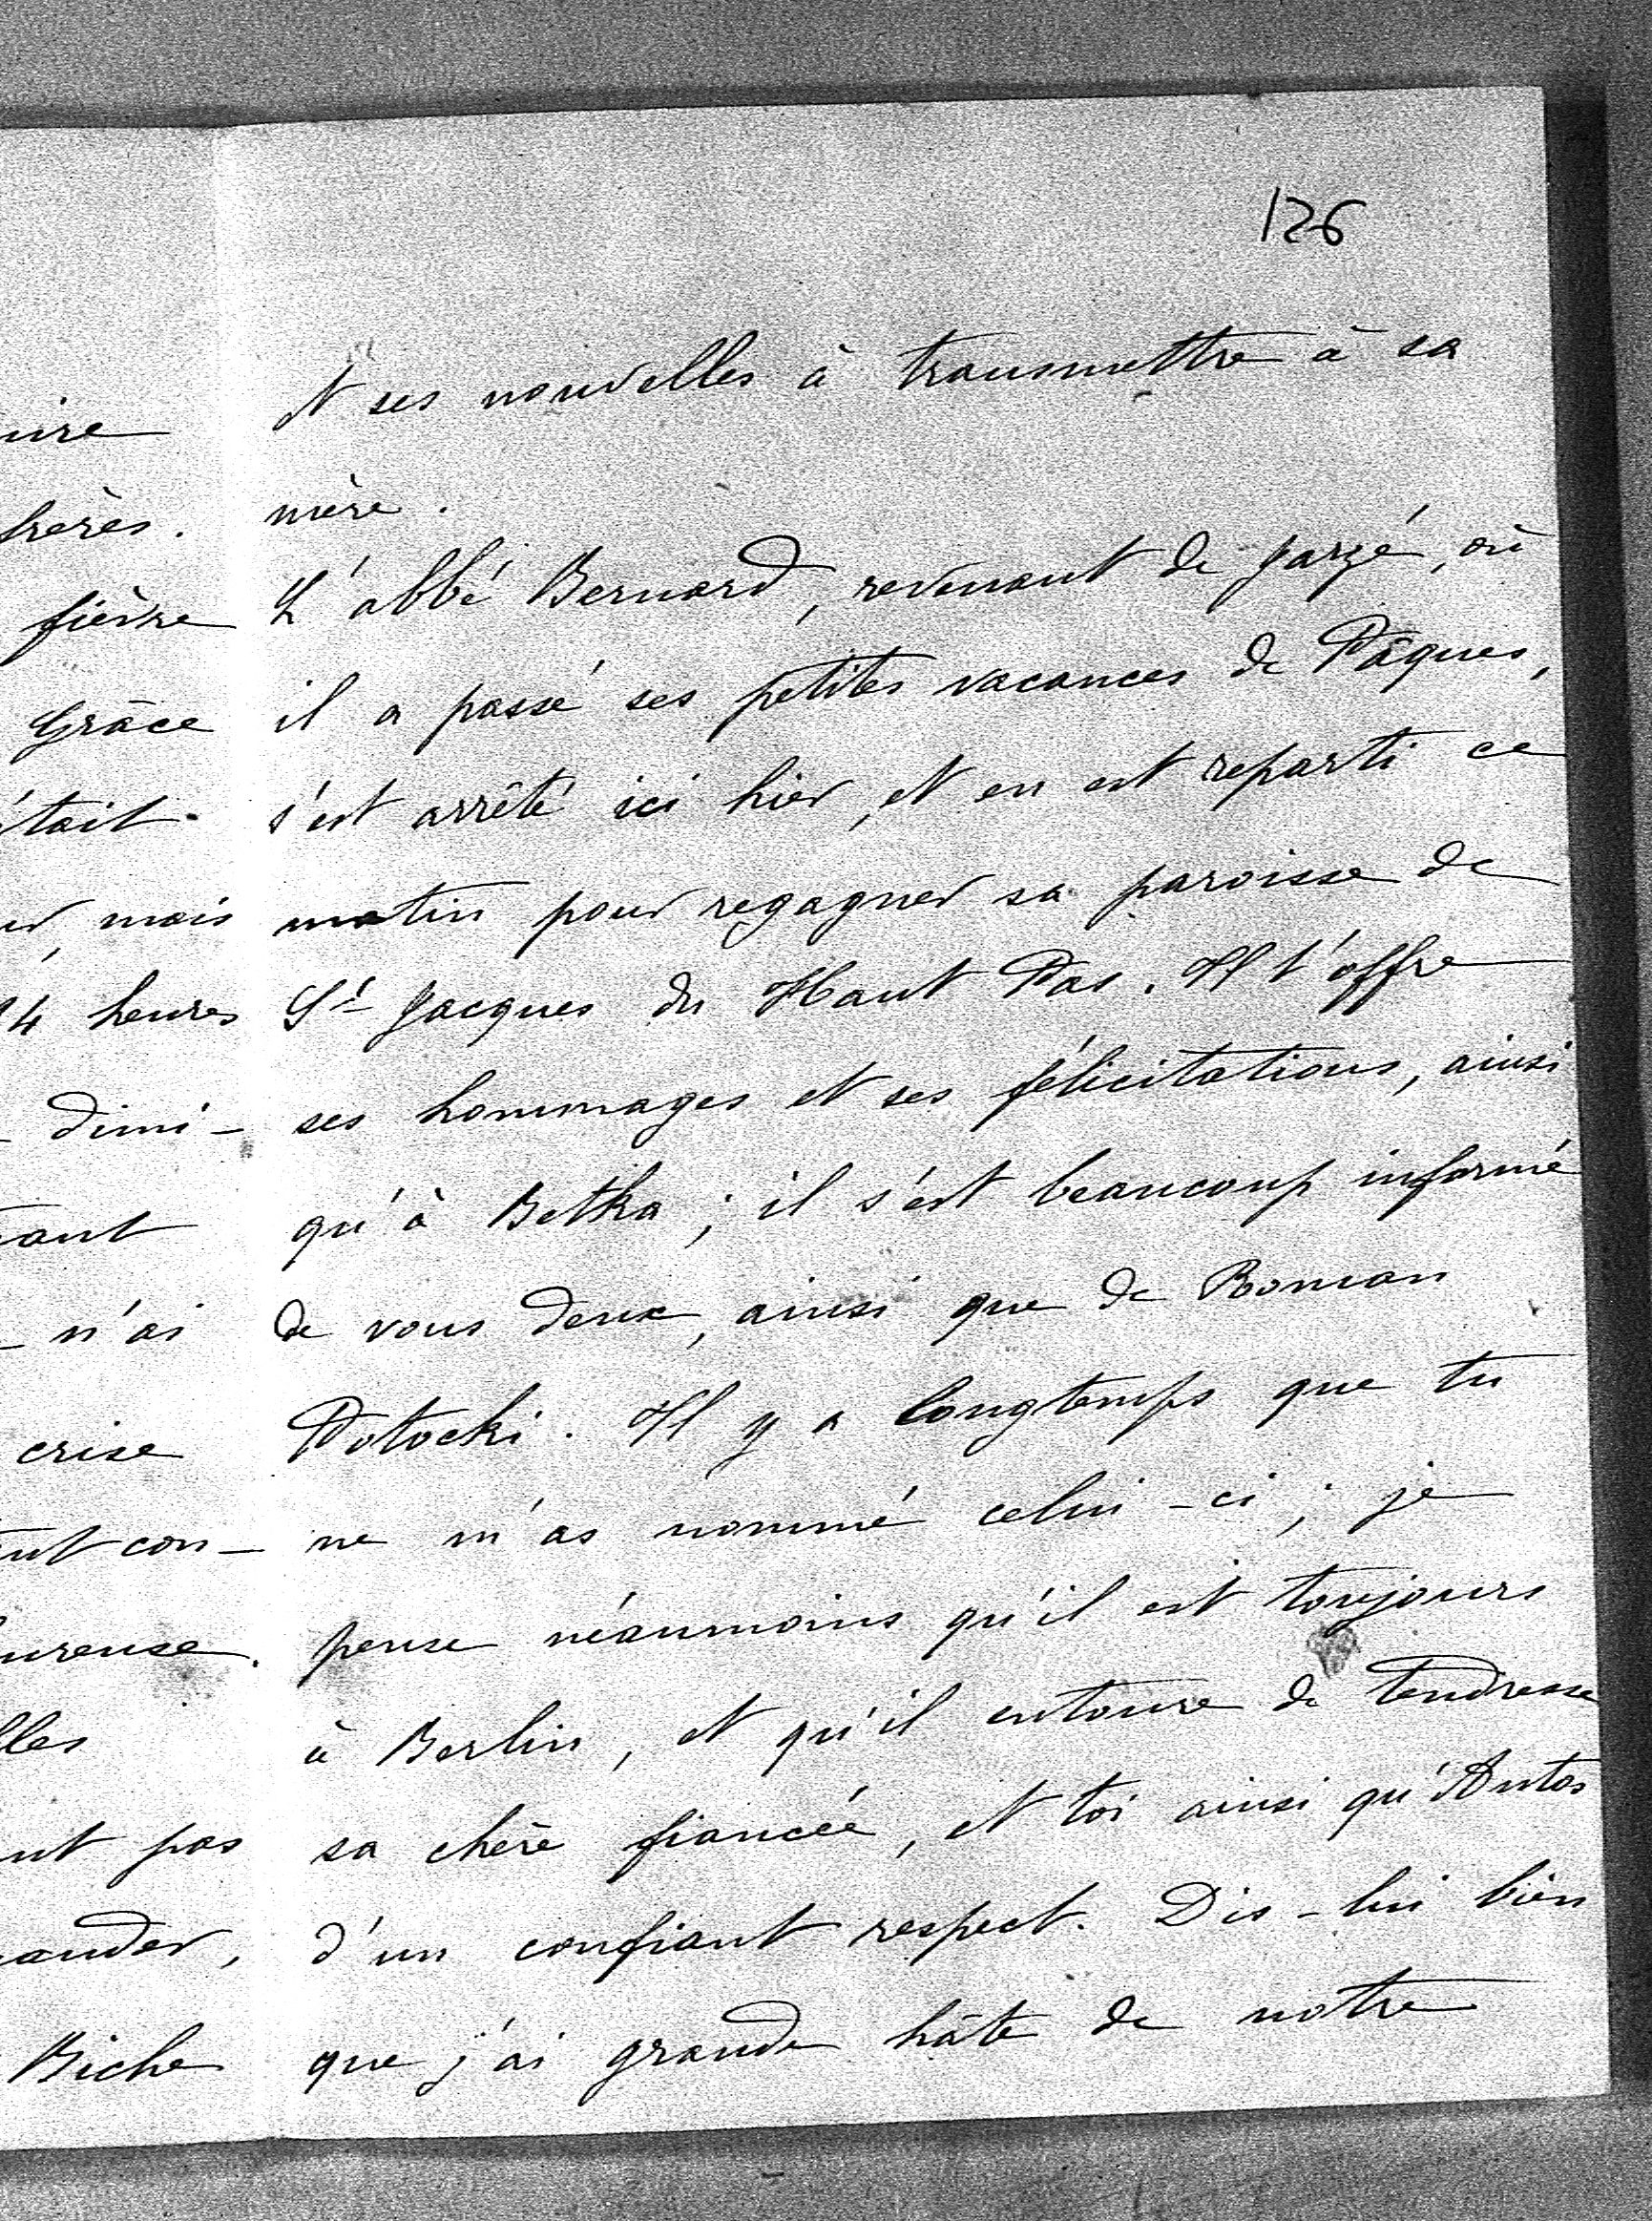 126
et ses nouvelles à transmettre à sa
mère.
L'abbé Bernard, revenant de Jarzé, où
il a passé ses petites vacances de Pâques,
s'est arrêté ici hier, et en est reparti ce
matin pour regagner sa paroisse de
St Jacques du Haut Pas. Il t'offre
ses hommages et ses félicitations, ainsi
qu'à Betka; il s'est beaucoup informé
de vous deux, ainsi que de Roman
Potocki. Il y a longtemps que tu
ne m'as nommé celui-ci; je
pense néanmoins qu'il est toujours
à Berlin, et qu'il entoure de tendresse
sa chère fiancée, et toi ainsi qu'Antos
d'un confiant respect. Dis-lui bien
que j'ai grande hâte de notre
fièvre
Grâce
mais
4 heures
dimi-
n'ai
crise
con-
pas
Biche